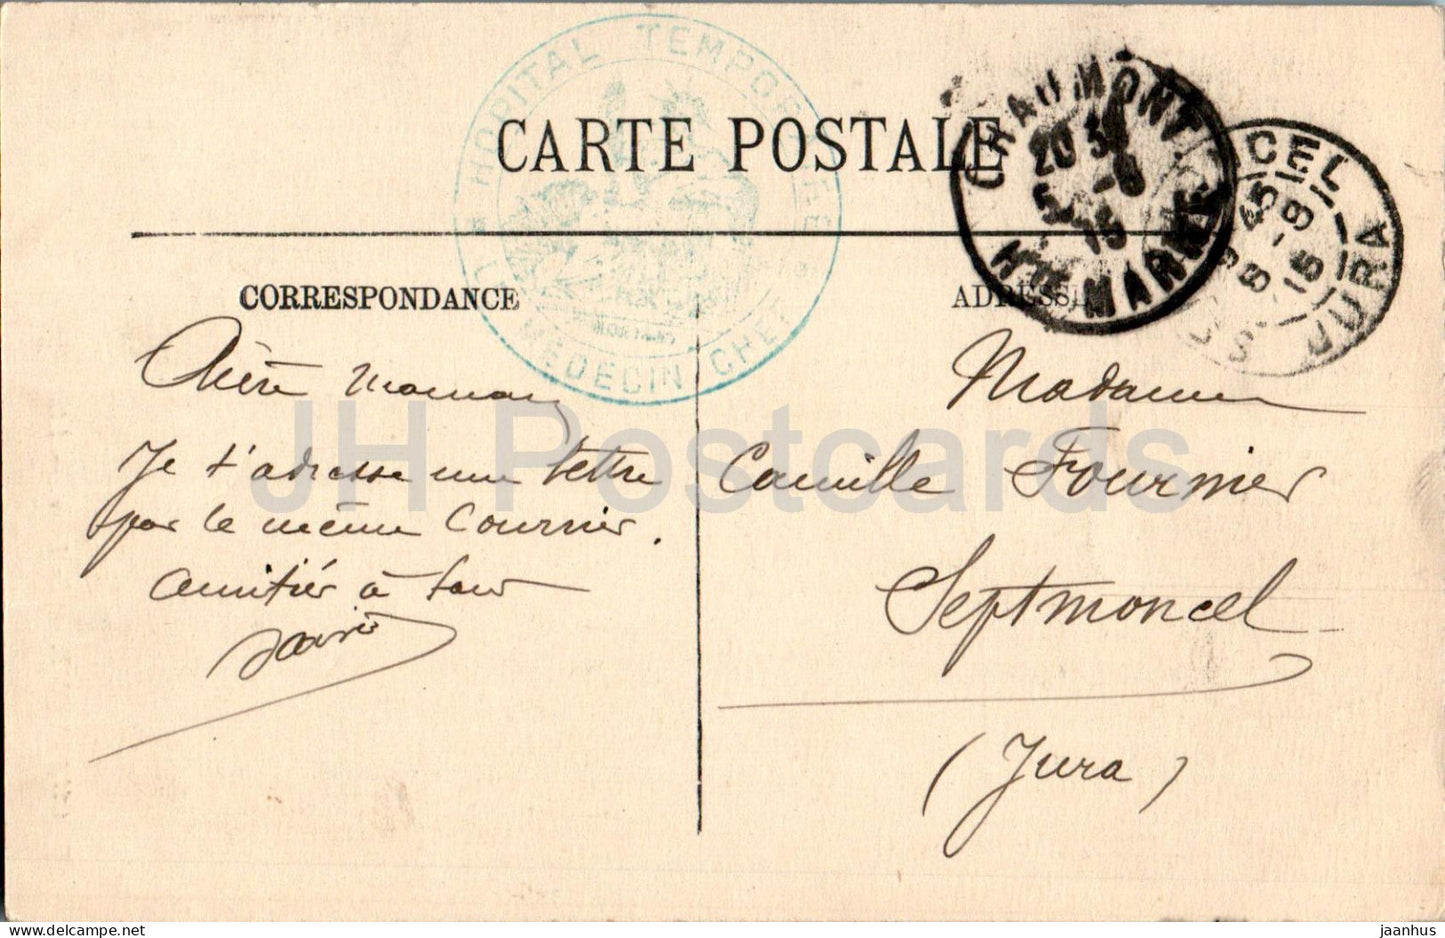 HOPITAL TEMPORAIRE
MEDECIN CHEF
CARTE POSTALE
CHAUMONT
20 30
5 - 8
15
HTE MARNE
45
8 - 8
15
JURA
CORRESPONDANCE
ADRESSE
Chère Maman
Je t'adresse une lettre
par le même Courrier.
Amitiés à tous
Madame
Camille Fournier
Septmoncel
(Jura)
JH Postcards
delcampe.net
jaanhus